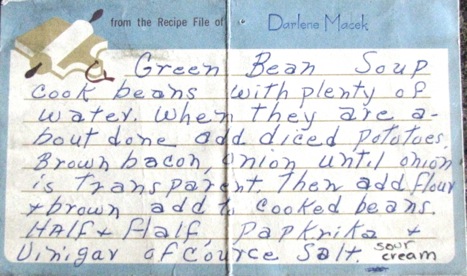 from the Recipe File of Darlene Macek
Green Bean Soup
Cook beans with plenty of
water. When they are a-
bout done add diced potatoes.
Brown bacon, onion until onion
is transparent. Then add flour
+ brown add to cooked beans.
HAlf + Half, Papkrika +
Vinigar of cource Salt. sour
cream